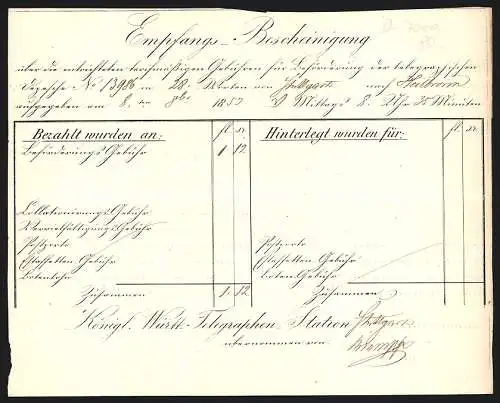 Empfangs-Bescheinigung
über die entrichteten tarifmäßigen Gebühren für Beförderung der telegraphischen
Depesche No 13986 in 28 Worten von Stuttgart nach Heilbronn
aufgegeben am 8. ten 8br 1857 V Mittags 8 Uhr 25 Minuten
Bezahlt wurden an: fl. xr. Hinterlegt wurden für: fl. xr.
Beförderungs Gebühr 1 12
Collationirungs Gebühr
Vervielfältigungs Gebühr
Postporto Postporto
Estaffetten-Gebühr Estaffetten-Gebühr
Botenlohn Boten-Gebühr
Zusammen 1 12 Zusammen
Königl. Württ. Telegraphen Station Stuttgart
übernommen von